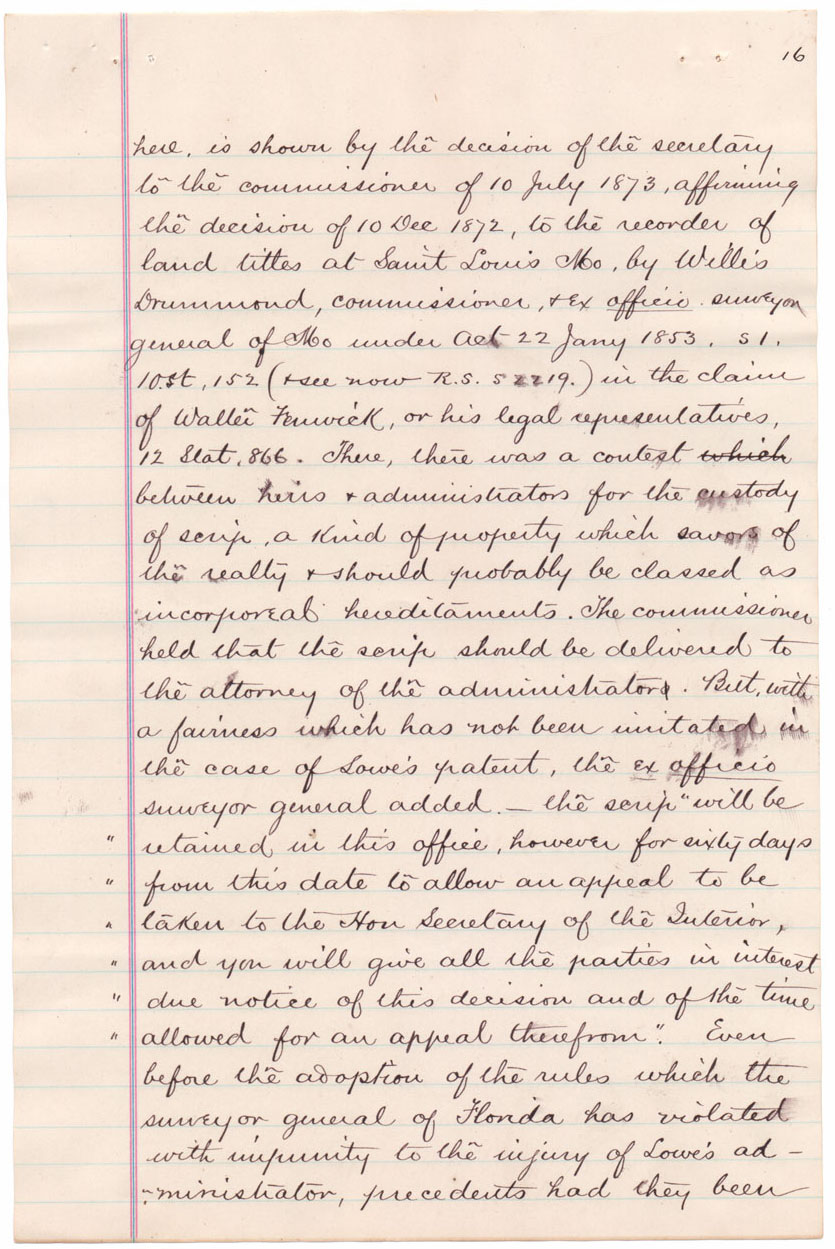 16
here, is shown by the decision of the secretary
to the commissioner of 10 July 1873, affirming
the decision of 10 Dec 1872, to the recorder of
land titles at Saint Louis Mo, by Willis
Drummond, commissioner, + ex officio surveyor
general of Mo under Act 22 Jany 1853. S 1.
10.St, 152 (+ see now R.S. S 2219.) in the claim
of Walter Fenwick, or his legal representatives,
12 Stat. 866. There, there was a contest which
between heirs + administrators for the custody
of scrip, a kind of property which savors of
the realty + should probably be classed as
incorporeal hereditaments. The commissioner
held that the scrip should be delivered to
the attorney of the administrators. But, with
a fairness which has not been imitated in
the case of Lowe's patent, the ex officio
surveyor general added. — the scrip "will be
" retained in this office, however for sixty days
" from this date to allow an appeal to be
" taken to the Hon Secretary of the Interior,
" and you will give all the parties in interest
" due notice of this decision and of the time
" allowed for an appeal therefrom". Even
before the adoption of the rules which the
surveyor general of Florida has violated
with impunity to the injury of Lowe's ad-
-ministrator, precedents had they been